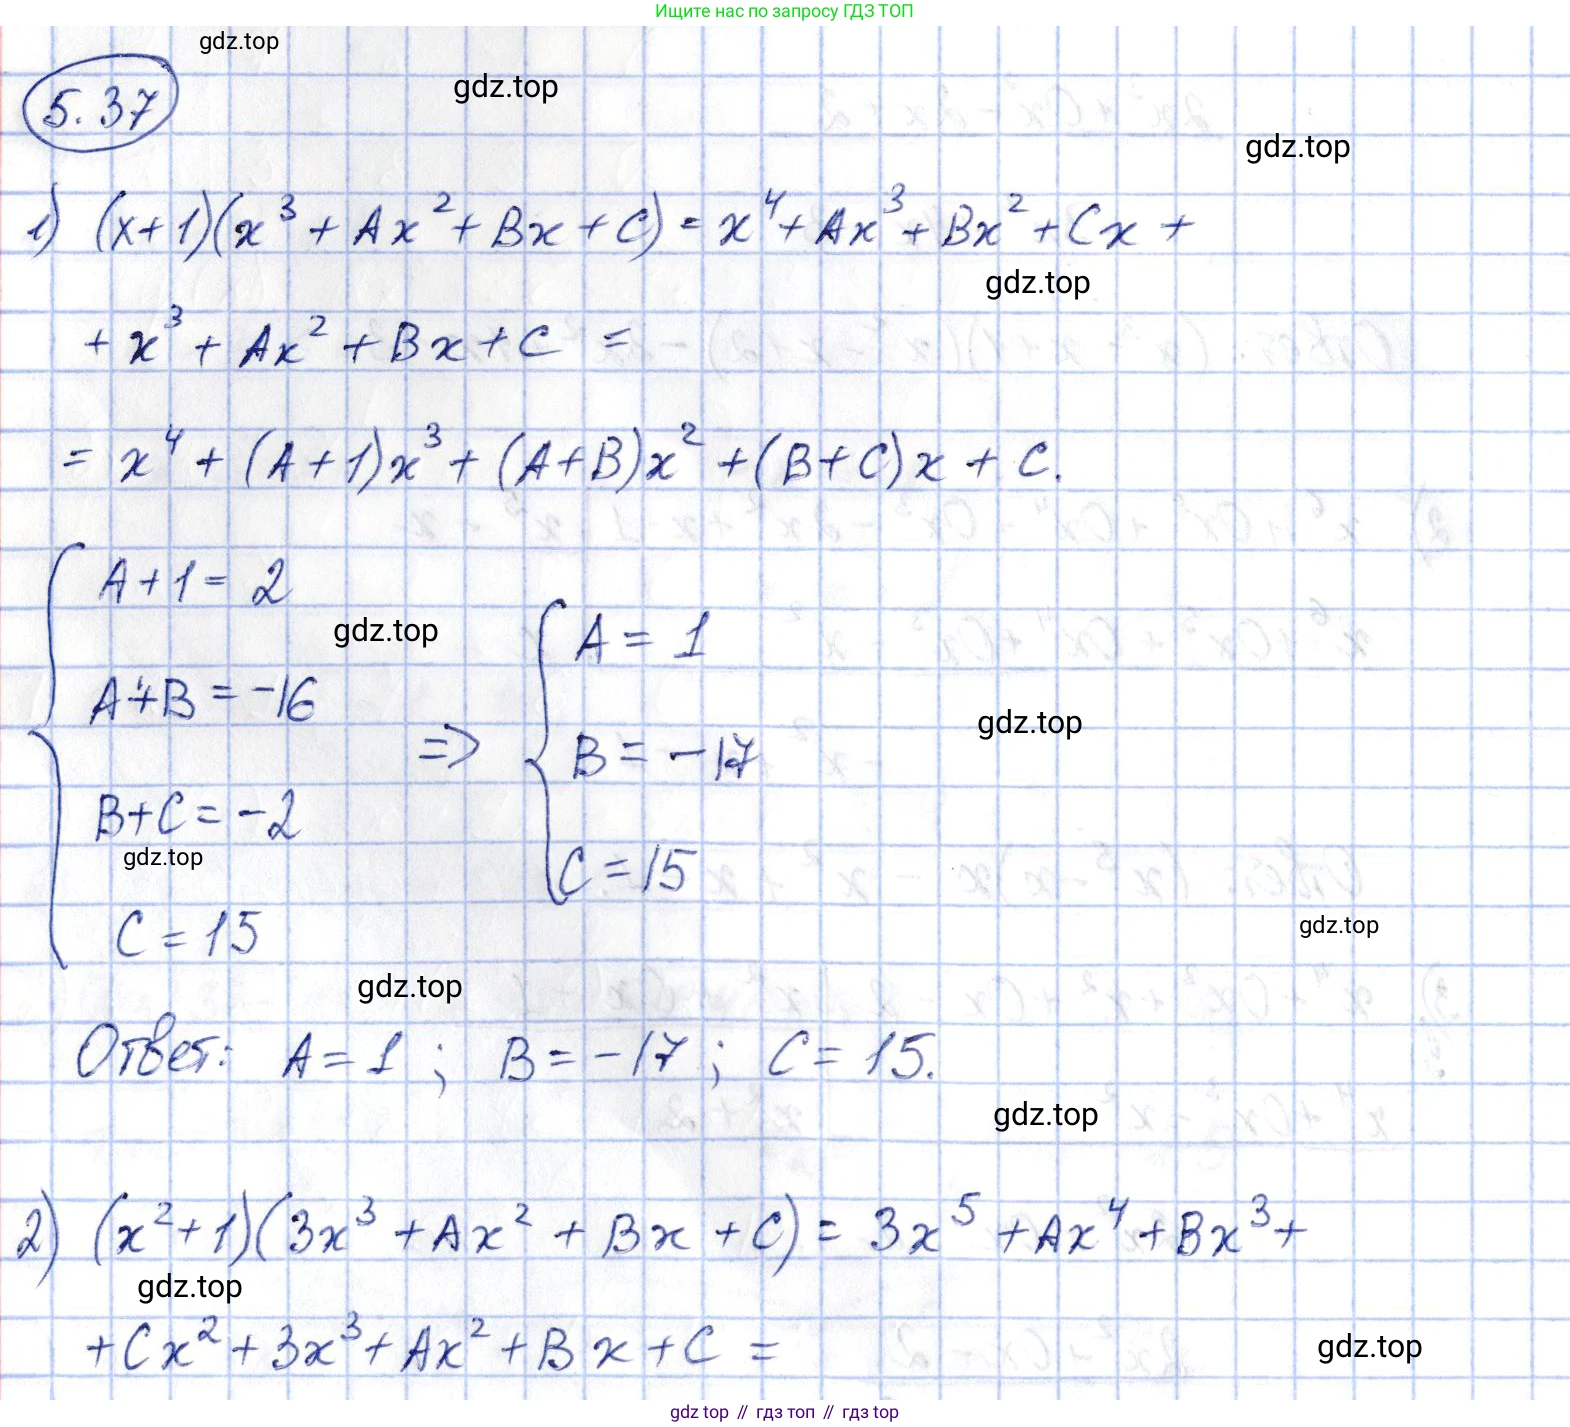 Ищите нас по запросу ГДЗ ТОП
gdz.top
gdz.top
5.37
gdz.top
1) (x+1)(x³ + Ax² + Bx + C) = x⁴ + Ax³ + Bx² + Cx +
gdz.top
+ x³ + Ax² + Bx + C =
= x⁴ + (A+1)x³ + (A+B)x² + (B+C)x + C.
{ A+1 = 2
gdz.top
{ A = 1
A+B = -16
gdz.top
=> B = -17
B+C = -2
gdz.top
C = 15
gdz.top
C = 15
gdz.top
Ответ: A = 1 ; B = -17 ; C = 15.
gdz.top
2) (x²+1)(3x³ + Ax² + Bx + C) = 3x⁵ + Ax⁴ + Bx³ +
gdz.top
+ Cx² + 3x³ + Ax² + Bx + C =
gdz.top
gdz top // гдз топ // гдз top